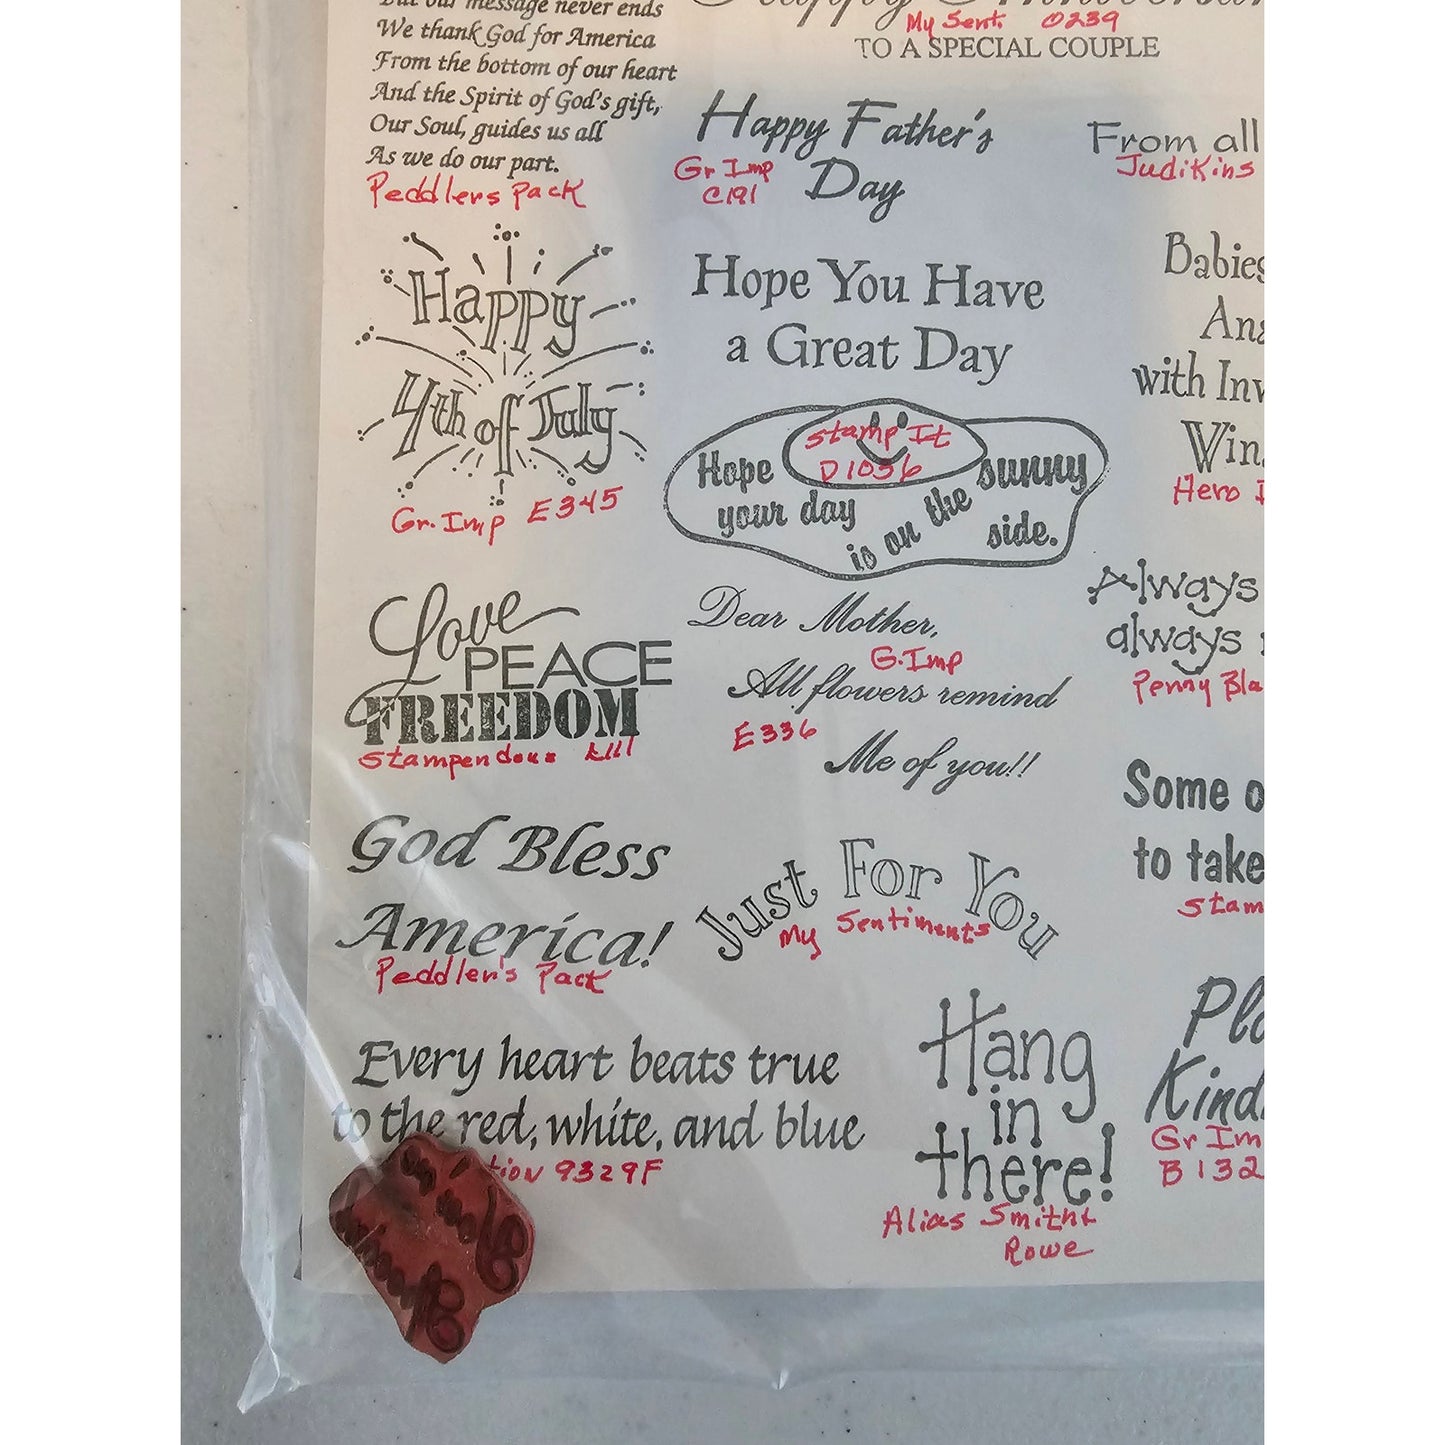 But our message never ends
We thank God for America
From the bottom of our heart
And the Spirit of God's gift,
Our Soul, guides us all
As we do our part.
Peddlers Pack
Happy
4th of July
Gr. Imp E345
Love
PEACE
FREEDOM
Stampendous
God Bless
America!
Peddler's Pack
Every heart beats true
to the red, white, and blue
tion 9329F
Happy
My Sent. O239
TO A SPECIAL COUPLE
Happy Father's
Day
Gr Imp
C191
Hope You Have
a Great Day
Stamp It
D1056
Hope your day is on the sunny side.
Dear Mother,
G. Imp
All flowers remind
E336
Me of you!!
Just For You
My Sentiments
Hang
in
there!
Alias Smith &
Rowe
From all
JudiKins
Babies
with
Hero
Always
always
Penny Bla
Some
to take
Stam
Kind
Gr Im
B132
God Bless
America